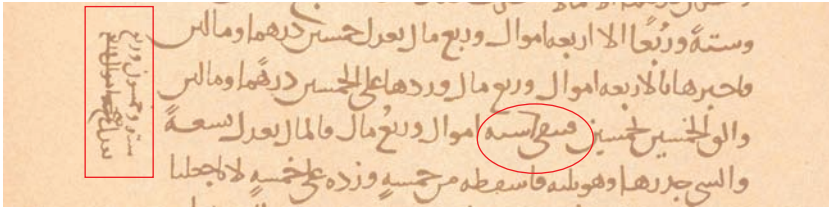 وستة وربعا الا اربعه اموال وربع مال يعدل خمسين درهما ومالين
فاجبرها بالاربعه اموال وربع مال وردها على الخمسين درهما ومالين
والق الخمسين لخمسين فيبقى سته اموال وربع مال فالمال يعدل تسعة
والشي جدرها وهو ثلثه فاسقطه من خمسه وزده على خمسه لانا جعلنا
سته وخمسون وربع
يعدل اموال وربع